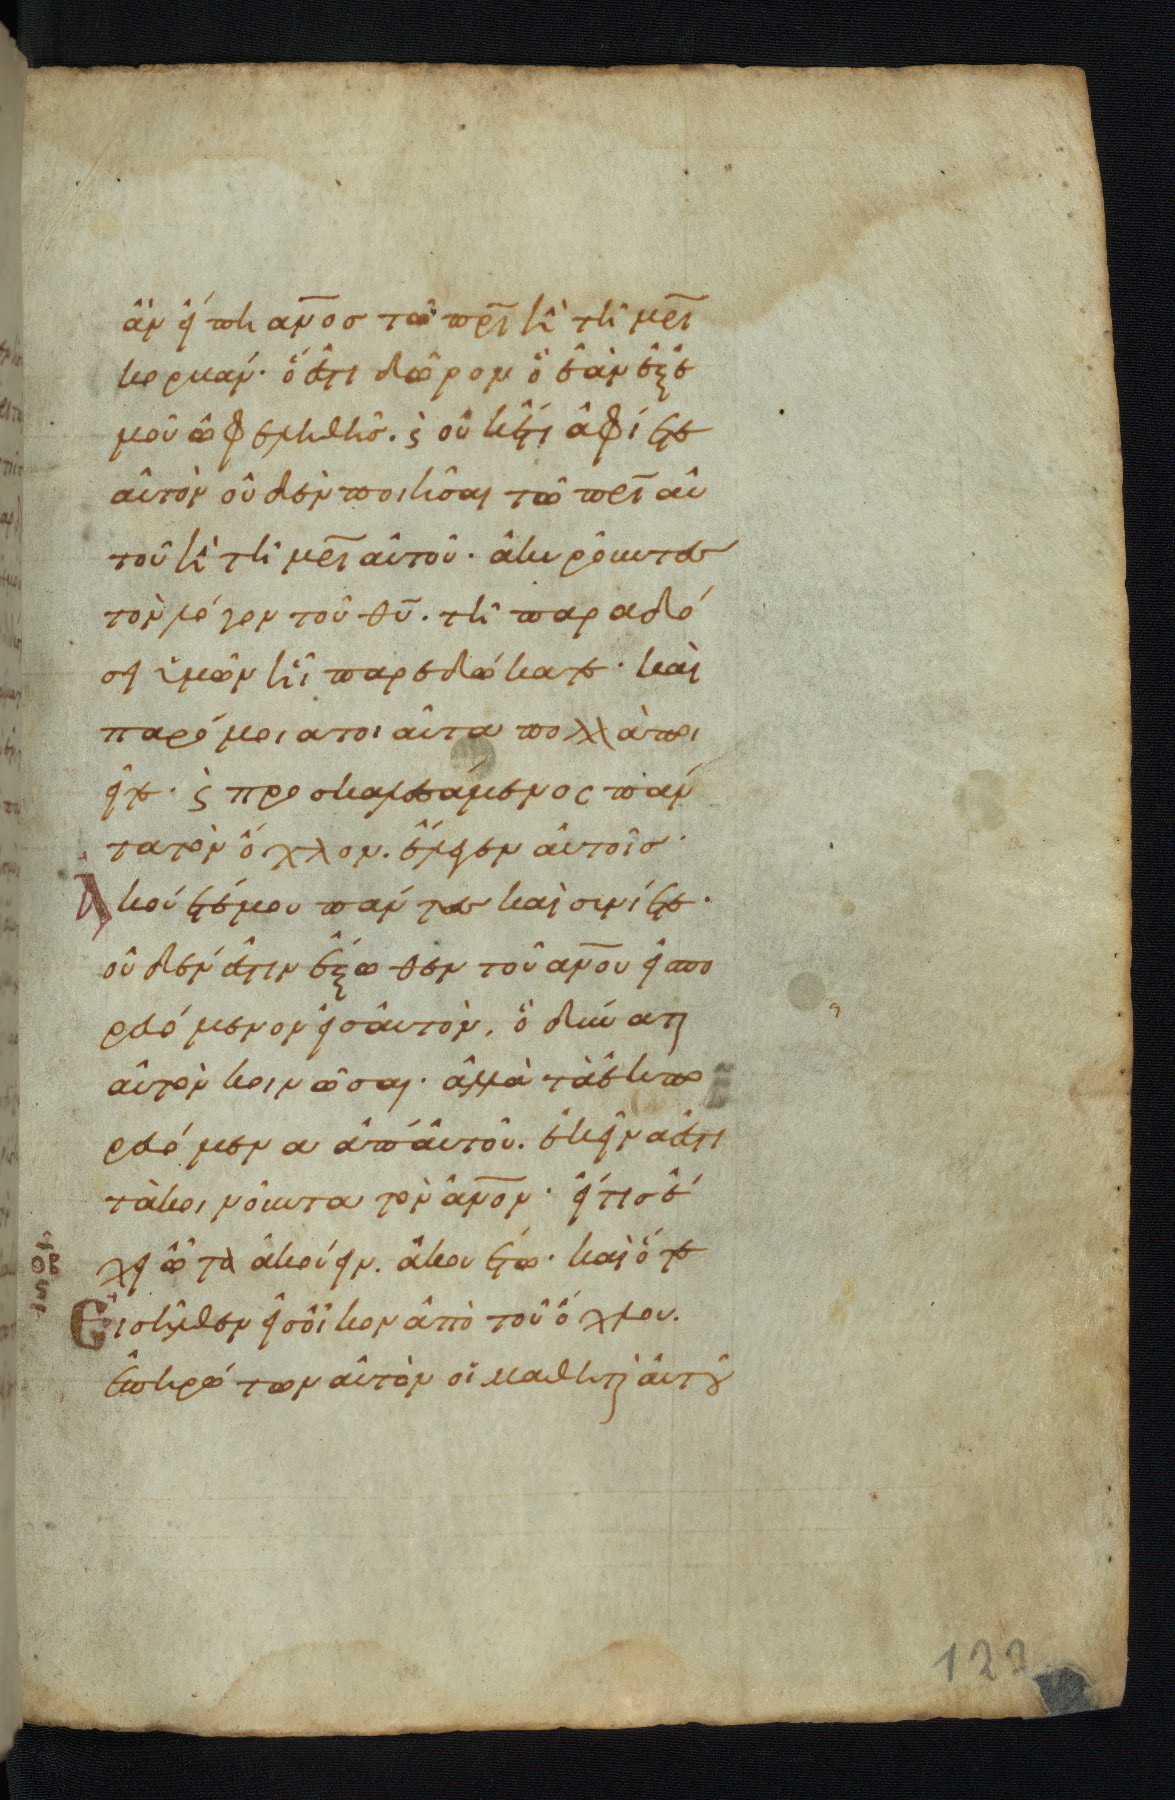 ἂν εἴπη ἀν̅ο̅σ τῶ πρ̅ι ἢ τῆ μρ̅ι
κορβάν· ὅ ἐστι δῶρον ὃ ἐὰν ἐξ ἐ
μοῦ ὠφεληθῆσ. ϗ οὐκέτι ἀφίετε
αὐτὸν οὐδὲν ποιῆσαι τῶ πρ̅ι αὐ
τοῦ ἢ τῆ μρ̅ι αὐτοῦ· ἀκυροῦντεσ
τὸν λόγον τοῦ θ̅υ̅. τῆ παραδό
σει ὑμῶν ἧ παρεδώκατε· καὶ
παρόμοια τοιαῦτα πολλὰ ποι
εῖτε· ϗ προσκαλεσάμενος πάν
τα τὸν ὄχλον. ἔλεγεν αὐτοῖσ·
Ἀκούετέ μου πάντεσ καὶ συνίετε·
οὐδέν ἐστιν ἔξωθεν τοῦ ἀν̅ο̅υ εἰσπο
ρευόμενον εἰσ αὐτὸν, ὃ δύναται
αὐτὸν κοινῶσαι· ἀλλὰ τὰ ἐκπο
ρευόμενα ἀπ' αὐτοῦ. ἐκεῖνά ἐστι
τὰ κοινοῦντα τὸν ἀν̅ο̅ν· εἴ τισ ἔ
χει ὦτα ἀκούειν. ἀκουέτω· καὶ ὅτε
Εἰσῆλθεν εἰσ οἶκον ἀπὸ τοῦ ὄχλου.
ἐπηρώτων αὐτὸν οἱ μαθηταὶ αὐτοῦ
122